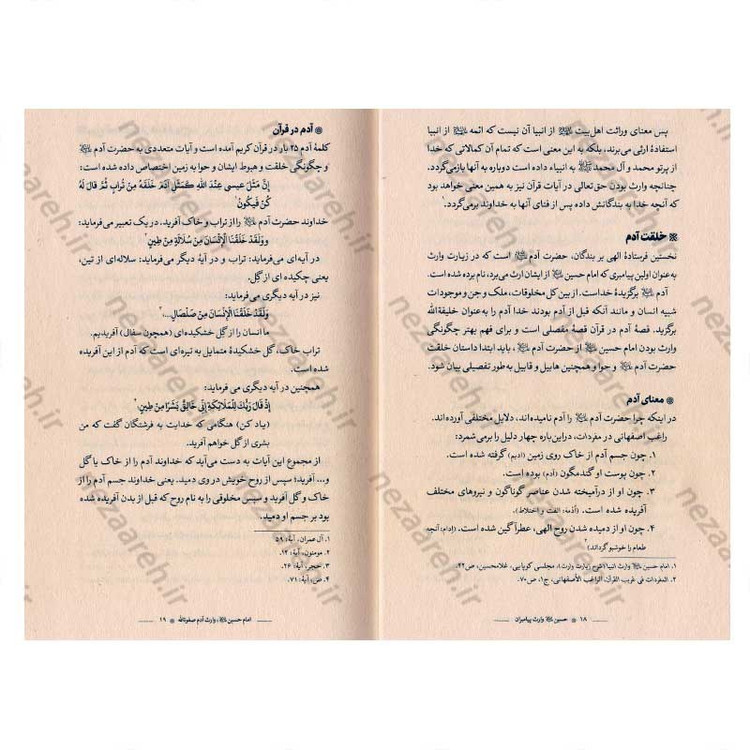 پس معنای وراثت اهل‌بیت علیهم‌السلام از انبیا آن نیست که ائمه علیهم‌السلام از انبیا
استفادهٔ ارثی می‌برند، بلکه به این معنی است که تمام آن کمالاتی که خدا
از پرتو محمد و آل محمد علیهم‌السلام به انبیاء داده است دوباره به آنها بازمی‌گردد.
چنانچه وارث بودن حق‌تعالی در آیات قرآن نیز به همین معنی خواهد بود
که آنچه خدا به بندگانش داده پس از فنای آنها به خداوند برمی‌گردد.۱
خلقت آدم
نخستین فرستادهٔ الهی بر بندگان، حضرت آدم علیه‌السلام است که در زیارت وارث
به‌عنوان اولین پیامبری که امام حسین علیه‌السلام از ایشان ارث می‌برد، نام برده شده است.
آدم علیه‌السلام برگزیدهٔ خداست. از بین کل مخلوقات، ملک و جن و موجودات
شبیه انسان و مانند آنکه قبل از آدم بودند خدا آدم را به‌عنوان خلیفةالله
برگزید. قصهٔ آدم در قرآن قصهٔ مفصلی است و برای فهم بهتر چگونگی
وارث بودن امام حسین علیه‌السلام از حضرت آدم علیه‌السلام، باید ابتدا داستان خلقت
حضرت آدم علیه‌السلام و حوا و همچنین هابیل و قابیل به‌طور تفصیلی بیان شود.
معنای آدم
در اینکه چرا حضرت آدم علیه‌السلام را آدم نامیده‌اند، دلایل مختلفی آورده‌اند.
راغب اصفهانی در مفردات، دراین‌باره چهار دلیل را برمی‌شمرد:
۱. چون جسم آدم از خاک روی زمین (ادیم) گرفته شده است.
۲. چون پوست او گندمگون (آدم) بوده است.
۳. چون او از درآمیخته شدن عناصر گوناگون و نیروهای مختلف
آفریده شده است. (أُدمَة: الفت و اختلاط).
۴. چون او از دمیده شدن روح الهی، عطرآگین شده است. (إدام: آنچه
طعام را خوشبو گرداند)۲
۱. امام حسین علیه‌السلام وارث انبیا (شرح زیارت وارث)، مجلسی کوپایی، غلامحسین، ص۲۲.
۲. المفردات فی غریب القرآن، الراغب الأصفهانی، ج۱، ص۷۰.
۱۸ حسین علیه‌السلام وارث پیامبران
آدم در قرآن
کلمهٔ آدم ۲۵ بار در قرآن کریم آمده است و آیات متعددی به حضرت آدم علیه‌السلام
و چگونگی خلقت و هبوط ایشان و حوا به زمین اختصاص داده شده است:
إِنَّ مَثَلَ عیسی عِنْدَ اللهِ کَمَثَلِ آدَمَ خَلَقَهُ مِنْ تُرابٍ ثُمَّ قالَ لَهُ
کُنْ فَیَکُونُ۱
خداوند حضرت آدم علیه‌السلام را از تراب و خاک آفرید. در یک تعبیر می‌فرماید:
وَلَقَدْ خَلَقْنَا الْإِنْسَانَ مِنْ سُلَالَةٍ مِنْ طِینٍ۲
در آیه‌ای می‌فرماید: تراب و در آیهٔ دیگر می‌فرماید: سلاله‌ای از تین،
یعنی چکیده ای از گِل.
نیز در آیه دیگری می‌فرماید:
وَلَقَدْ خَلَقْنَا الْإِنْسَانَ مِنْ صَلْصَالٍ...۳
ما انسان را از گلِ خشکیده‌ای (همچون سفال) آفریدیم.
تراب خاک، گل خشکیدهٔ متمایل به تیره‌ای است که آدم از این آفریده
شده است.
همچنین در آیه دیگری می فرماید:
إِذْ قَالَ رَبُّکَ لِلْمَلَائِکَةِ إِنِّی خَالِقٌ بَشَرًا مِنْ طِینٍ۴
(یاد کن) هنگامی که خدایت به فرشتگان گفت که من
بشری از گل خواهم آفرید.
از مجموع این آیات به دست می‌آید که خداوند آدم را از خاک یا گل
و... آفرید؛ سپس از روح خویش در وی دمید. یعنی خداوند جسد آدم را از
خاک و گل آفرید و سپس مخلوقی را به نام روح که قبل از بدن آفریده شده
بود بر جسم او دمید.
۱. آل عمران، آیهٔ: ۵۹
۲. مومنون، آیهٔ: ۱۲.
۳. حجر، آیهٔ: ۲۶.
۴. ص، آیهٔ: ۷۱.
امام حسین علیه‌السلام، وارث آدم صفوةالله ۱۹
nezaareh.ir